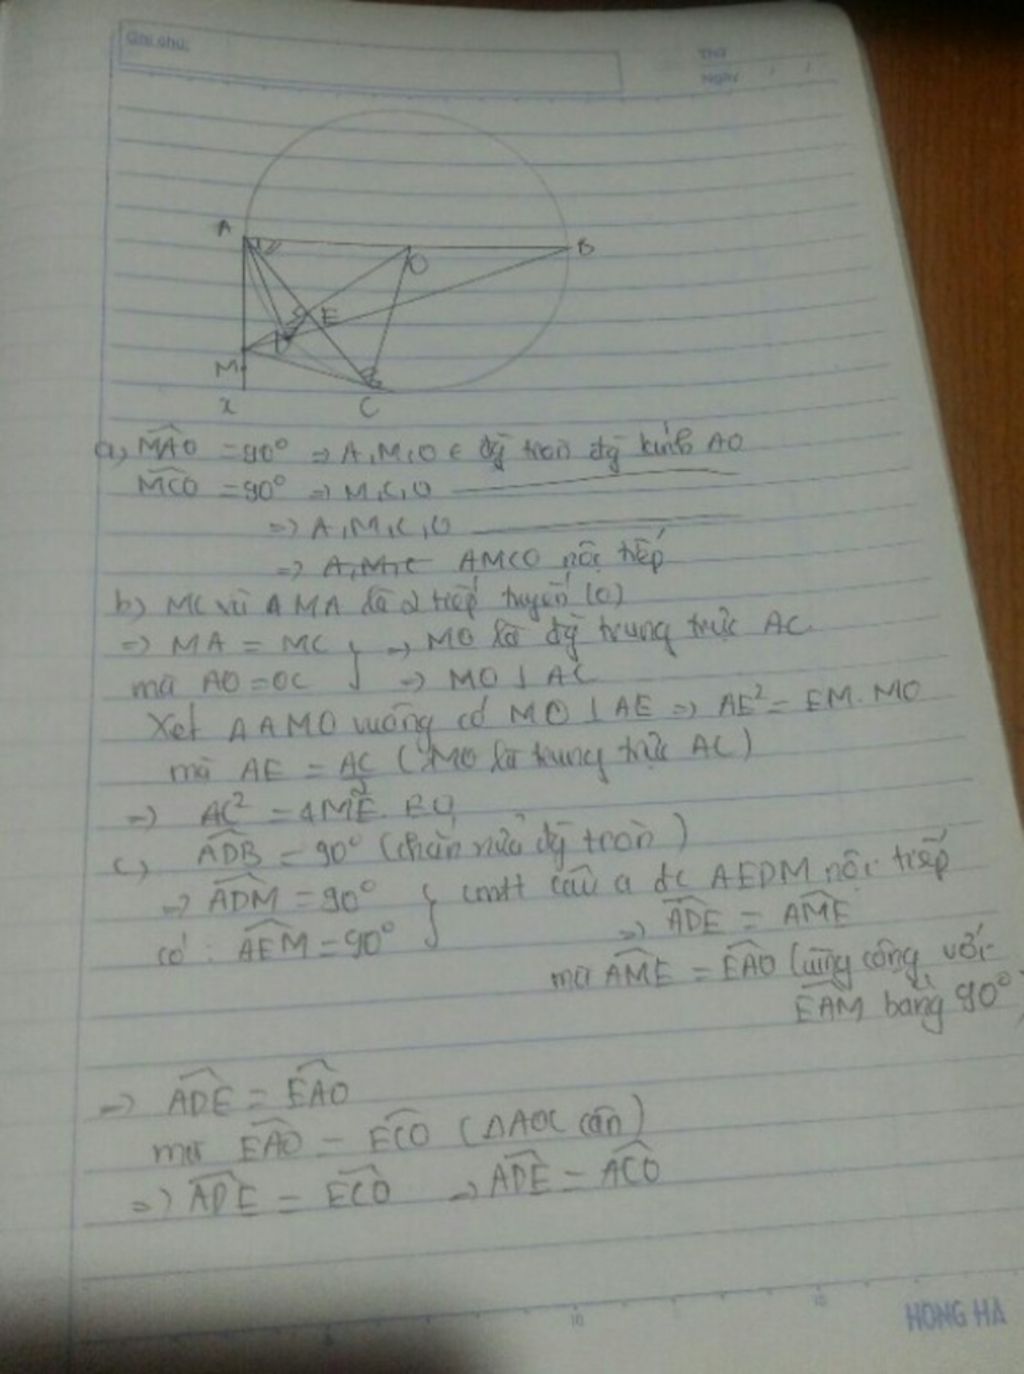 Ghi chú:
Thứ
Ngày
A
O
B
E
D
M
x
C
a, MAO = 90° => A,M,O ∈ đg tròn đg kính AO
MCO = 90° => M,C,O
=> A,M,C,O
=> A,M,C AMCO nội tiếp
b) MC và AMA là 2 tiếp tuyến (O)
=> MA = MC } => MO là đg trung trực AC.
mà AO = OC => MO ⊥ AC
Xét ΔAMO vuông có MO ⊥ AE => AE² = EM.MO
mà AE = AC/2 (MO là trung trực AC)
=> AC² = 4ME.EO
c, ADB = 90° (chắn nửa đg tròn)
=> ADM = 90° } cmtt câu a đc AEDM nội tiếp
có: AEM = 90° => ADE = AME
mà AME = EAO (cùng cộng với
EAM bằng 90°)
=> ADE = EAO
mà EAO = ECO (ΔAOC cân)
=> ADE = ECO => ADE = ACO
10
HONG HA